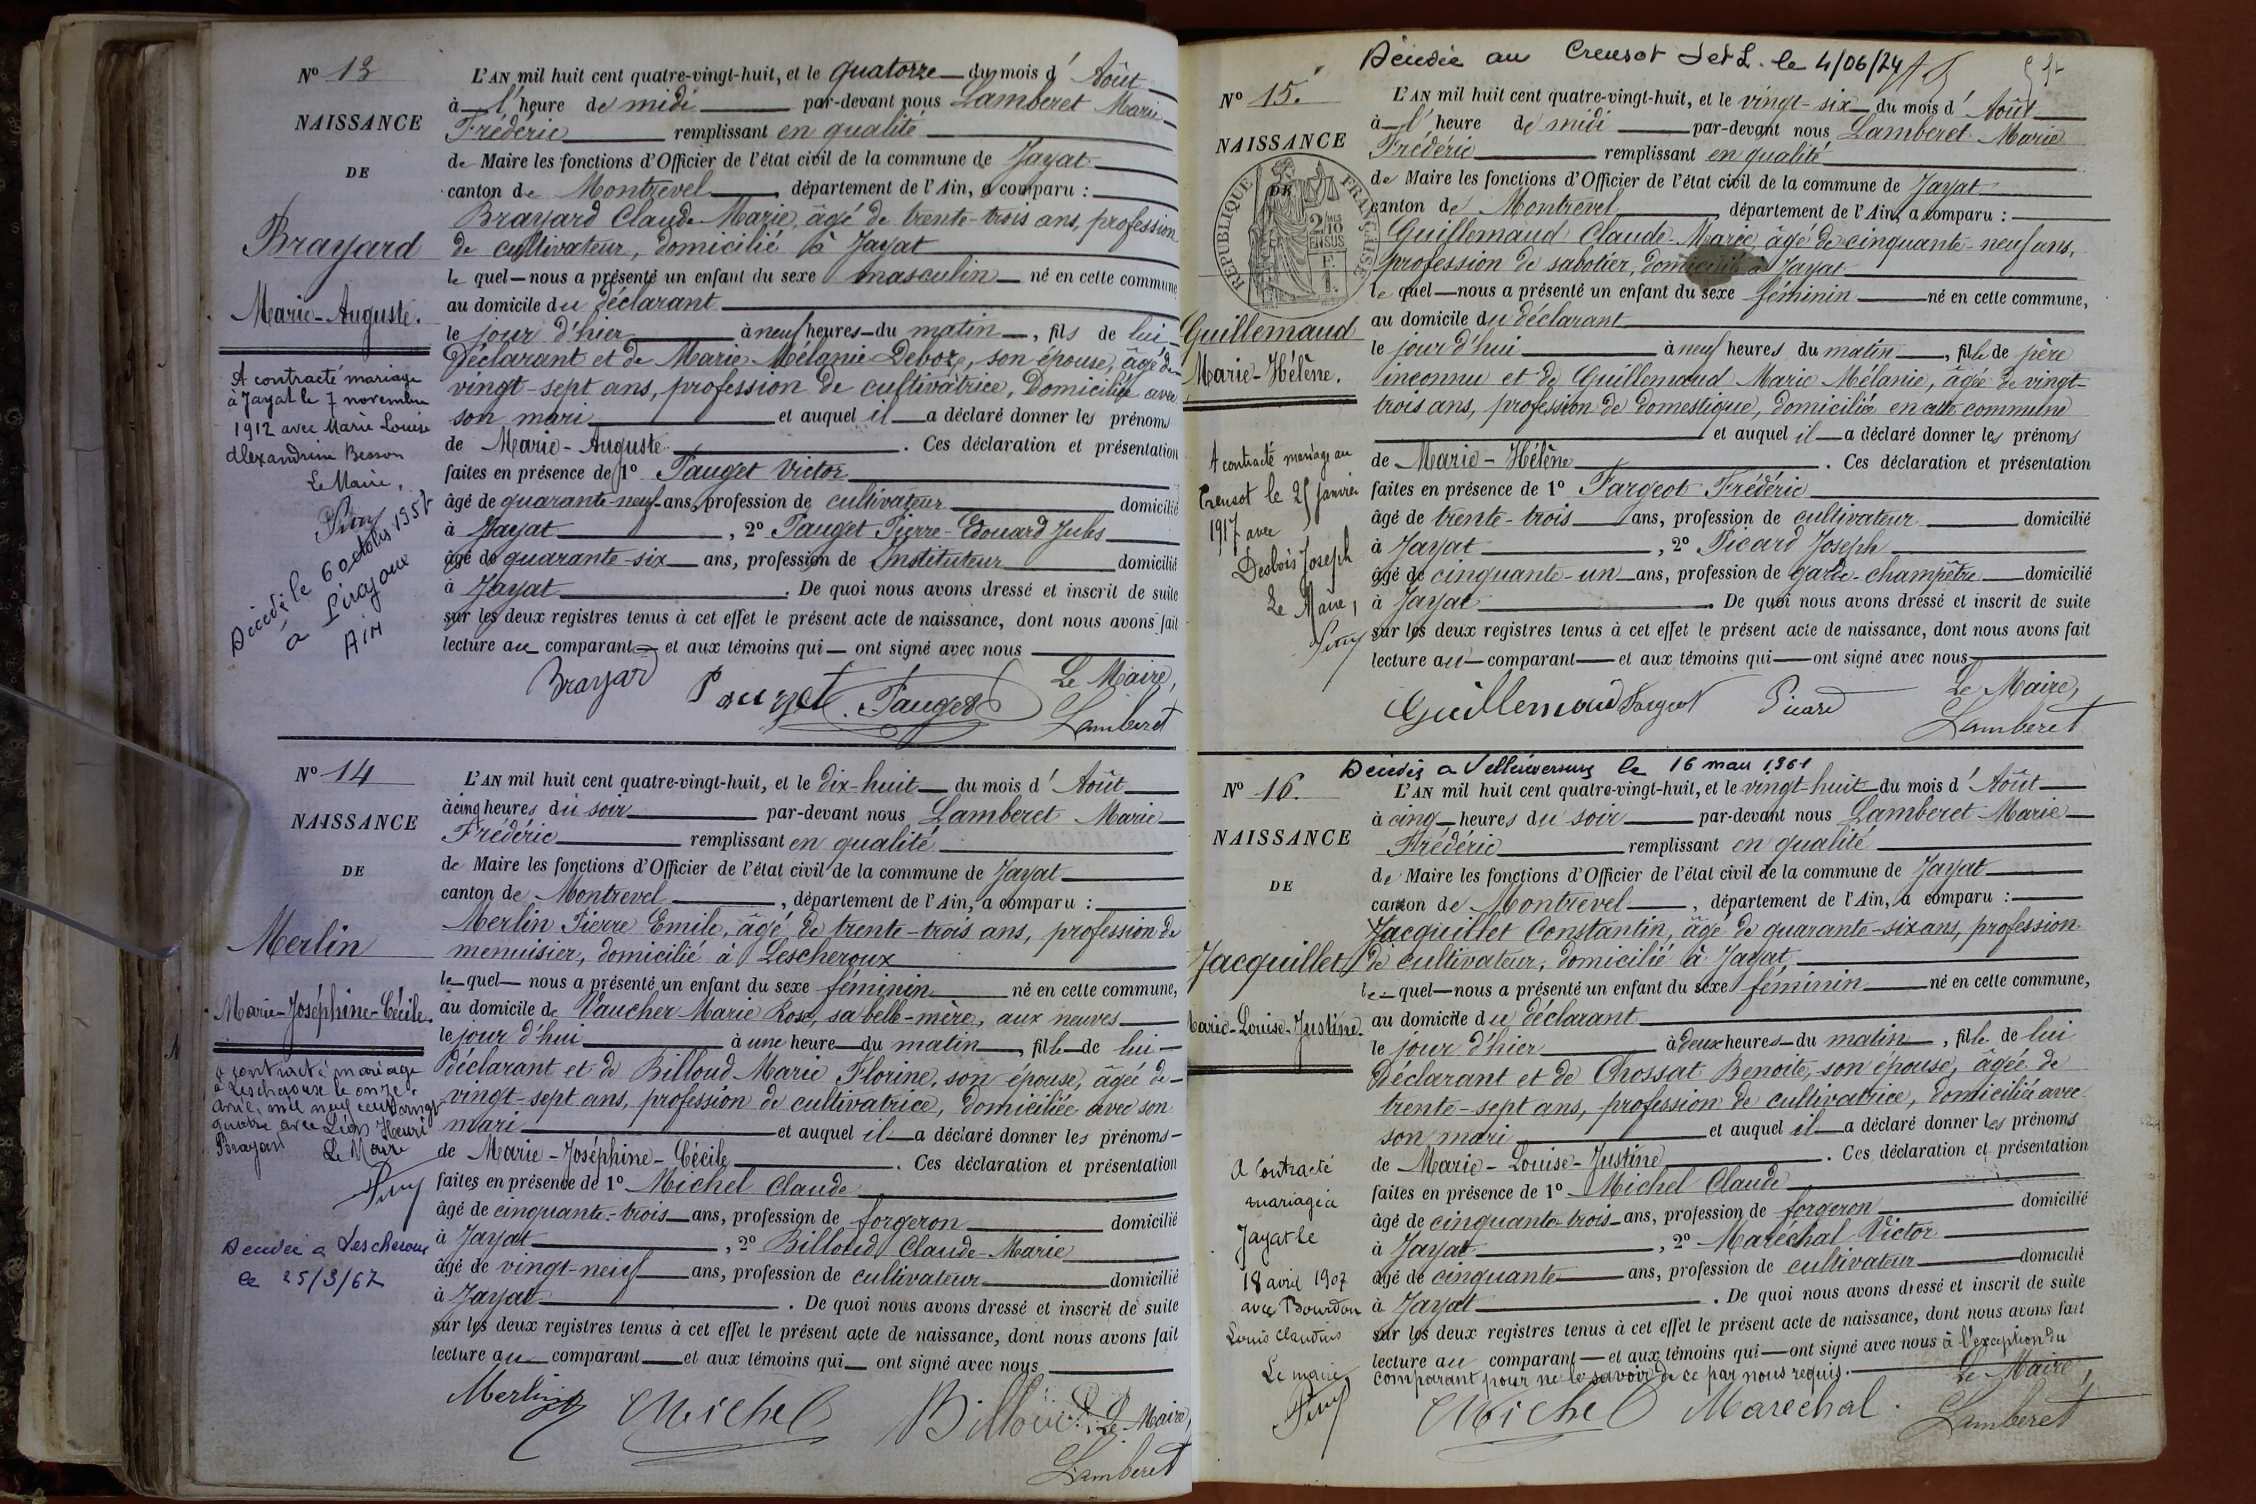 N° 13
NAISSANCE
DE
Brayard
Marie-Auguste.
A contracté mariage
à Jayat le 7 novembre
1912 avec Marie Louise
Alexandrine Besson
Le Maire,
Décédé le 6 octobre 1957
à
Ain
L'AN mil huit cent quatre-vingt-huit, et le quatorze du mois d'Août
à l'heure de midi par-devant nous Lamberet Marie
Frédéric remplissant en qualité
de Maire les fonctions d'Officier de l'état civil de la commune de Jayat
canton de Montrevel, département de l'Ain, a comparu :
Brayard Claude Marie, âgé de trente-trois ans, profession
de cultivateur, domicilié à Jayat
le quel nous a présenté un enfant du sexe masculin né en cette commune
au domicile du déclarant
le jour d'hier à neuf heures du matin, fils de lui
déclarant et de Marie Mélanie Deboze, son épouse, âgée de
vingt-sept ans, profession de cultivatrice, domiciliée avec
son mari et auquel il a déclaré donner les prénoms
de Marie-Auguste. Ces déclaration et présentation
faites en présence de 1° Pauget Victor
âgé de quarante-neuf ans, profession de cultivateur domicilié
à Jayat, 2° Pauget Pierre-Edouard Jules
âgé de quarante-six ans, profession de Instituteur domicilié
à Jayat. De quoi nous avons dressé et inscrit de suite
sur les deux registres tenus à cet effet le présent acte de naissance, dont nous avons fait
lecture au comparant et aux témoins qui ont signé avec nous
Le Maire,
Brayard Pauget Pauget Lamberet
N° 14
NAISSANCE
DE
Merlin
Marie-Joséphine-Cécile.
a contracté mariage
à Lescheroux le onze
avril mil neuf cent vingt
quatre avec Léon Henri
Brayard Le Maire
Décédée à Lescheroux
le 25/3/67
L'AN mil huit cent quatre-vingt-huit, et le dix-huit du mois d'Août
à cinq heures du soir par-devant nous Lamberet Marie
Frédéric remplissant en qualité
de Maire les fonctions d'Officier de l'état civil de la commune de Jayat
canton de Montrevel, département de l'Ain, a comparu :
Merlin Pierre Emile, âgé de trente-trois ans, profession de
menuisier, domicilié à Lescheroux
le quel nous a présenté un enfant du sexe féminin né en cette commune,
au domicile de Vaucher Marie Rose, sa belle-mère, aux neuves
le jour d'hui à une heure du matin, fille de lui
déclarant et de Billoud Marie Florine, son épouse, âgée de
vingt-sept ans, profession de cultivatrice, domiciliée avec son
mari et auquel il a déclaré donner les prénoms
de Marie-Joséphine-Cécile. Ces déclaration et présentation
faites en présence de 1° Michel Claude
âgé de cinquante-trois ans, profession de forgeron domicilié
à Jayat, 2° Billoud Claude-Marie
âgé de vingt-neuf ans, profession de cultivateur domicilié
à Jayat. De quoi nous avons dressé et inscrit de suite
sur les deux registres tenus à cet effet le présent acte de naissance, dont nous avons fait
lecture au comparant et aux témoins qui ont signé avec nous
Merlin Michel Billoud Le Maire,
Lamberet
Décédée au Creusot S et L. le 4/06/74
N° 15.
NAISSANCE
DE
REPUBLIQUE FRANÇAISE
2/10 EN SUS
Guillemaud
Marie-Hélène.
A contracté mariage au
Creusot le 25 janvier
1917 avec
Desbois Joseph
Le Maire,
L'AN mil huit cent quatre-vingt-huit, et le vingt-six du mois d'Août
à l'heure de midi par-devant nous Lamberet Marie
Frédéric remplissant en qualité
de Maire les fonctions d'Officier de l'état civil de la commune de Jayat
canton de Montrevel, département de l'Ain, a comparu :
Guillemaud Claude-Marie, âgé de cinquante-neuf ans,
profession de sabotier, domicilié à Jayat
le quel nous a présenté un enfant du sexe féminin né en cette commune,
au domicile du déclarant
le jour d'hui à neuf heures du matin, fille de père
inconnu et de Guillemaud Marie Mélanie, âgée de vingt-
trois ans, profession de domestique, domiciliée en cette commune
et auquel il a déclaré donner les prénoms
de Marie-Hélène. Ces déclaration et présentation
faites en présence de 1° Fargeot Frédéric
âgé de trente-trois ans, profession de cultivateur domicilié
à Jayat, 2° Picard Joseph
âgé de cinquante-un ans, profession de garde-champêtre domicilié
à Jayat. De quoi nous avons dressé et inscrit de suite
sur les deux registres tenus à cet effet le présent acte de naissance, dont nous avons fait
lecture au comparant et aux témoins qui ont signé avec nous
Le Maire,
Guillemaud Fargeot Picard Lamberet
Décédée à Villereversure le 16 mars 1961
N° 16.
NAISSANCE
DE
Jacquillet
Marie-Louise-Justine.
A contracté
mariage à
Jayat le
18 avril 1907
avec Bourdon
Louis Claudius
Le maire
L'AN mil huit cent quatre-vingt-huit, et le vingt-huit du mois d'Août
à cinq heures du soir par-devant nous Lamberet Marie
Frédéric remplissant en qualité
de Maire les fonctions d'Officier de l'état civil de la commune de Jayat
canton de Montrevel, département de l'Ain, a comparu :
Jacquillet Constantin, âgé de quarante-six ans, profession
de cultivateur, domicilié à Jayat
le quel nous a présenté un enfant du sexe féminin né en cette commune,
au domicile du déclarant
le jour d'hier à deux heures du matin, fille de lui
déclarant et de Chossat Benoite, son épouse, âgée de
trente-sept ans, profession de cultivatrice, domiciliée avec
son mari et auquel il a déclaré donner les prénoms
de Marie-Louise-Justine. Ces déclaration et présentation
faites en présence de 1° Michel Claude
âgé de cinquante-trois ans, profession de forgeron domicilié
à Jayat, 2° Maréchal Victor
âgé de cinquante ans, profession de cultivateur domicilié
à Jayat. De quoi nous avons dressé et inscrit de suite
sur les deux registres tenus à cet effet le présent acte de naissance, dont nous avons fait
lecture au comparant et aux témoins qui ont signé avec nous à l'exception du
comparant pour ne le savoir de ce par nous requis. Le Maire,
Michel Maréchal. Lamberet